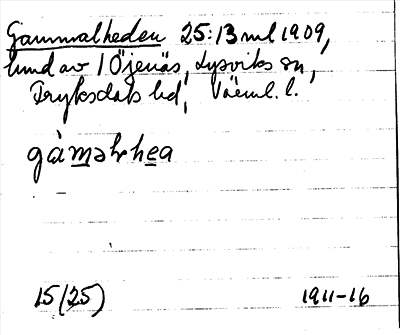 Gammalheden 25:13 ml 1909,
lund av 1 Öjenäs, Lysviks sn,
Fryksdals hd, Värml. l.
gàmałhea
15(25) 1911-16